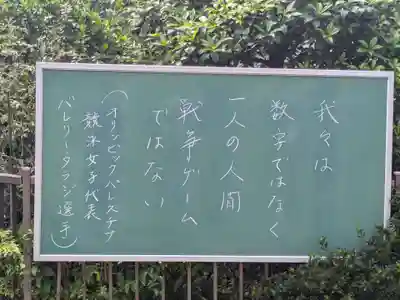 我々は
数字ではなく
一人の人間
戦争ゲーム
ではない
(オリンピックパレスチナ
競泳女子代表
バレリータラジ選手)